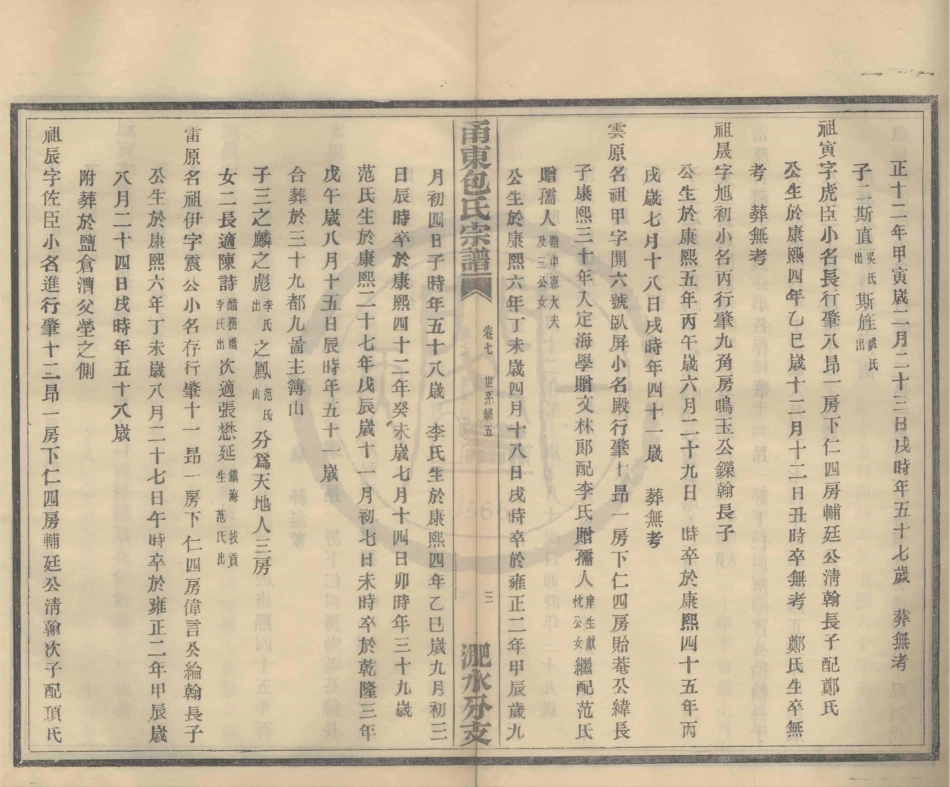 正十二年甲寅歲二月二十三日戌時年五十七歲 葬無考
子二斯直吳氏出斯旌鄭氏出
祖寅字虎臣小名長行肇八昂一房下仁四房輔廷公淸翰長子配鄭氏
公生於康熙四年乙巳歲十二月十二日丑時卒無考 鄭氏生卒無
考 葬無考
祖晟字旭初小名丙行肇九角房鳴玉公鑠翰長子
公生於康熙五年丙午歲六月二十九日 時卒於康熙四十五年丙
戌歲七月十八日戌時年四十一歲 葬無考
雲原名祖甲字開六號臥屏小名殿行肇十昂一房下仁四房貽菴公緯長
子康熙三十年入定海學贈文林郞配李氏贈孺人庠生獻忱公女繼配范氏
贈孺人贈中憲大夫及三公女
公生於康熙六年丁未歲四月十八日戌時卒於雍正二年甲辰歲九
甬東包氏宗譜 卷七 世系錄五 三 淝水分支
月初四日子時年五十八歲 李氏生於康熙四年乙巳歲九月初三
日辰時卒於康熙四十二年癸未歲七月十四日卯時年三十九歲
范氏生於康熙二十七年戊辰歲十一月初七日未時卒於乾隆三年
戊午歲八月十五日辰時年五十一歲
合葬於三十九都九啚主簿山
子三之麟之彪李氏出之鳳范氏出分爲天地人三房
女二長適陳詩醋務橋李氏出次適張懋延鎮海拔貢生范氏出
雷原名祖伊字震公小名存行肇十一昂一房下仁四房偉言公綸翰長子
公生於康熙六年丁未歲八月二十七日午時卒於雍正二年甲辰歲
八月二十四日戌時年五十八歲
附葬於鹽倉漕父塋之側
祖辰字佐臣小名進行肇十二昂一房下仁四房輔廷公淸翰次子配頂氏